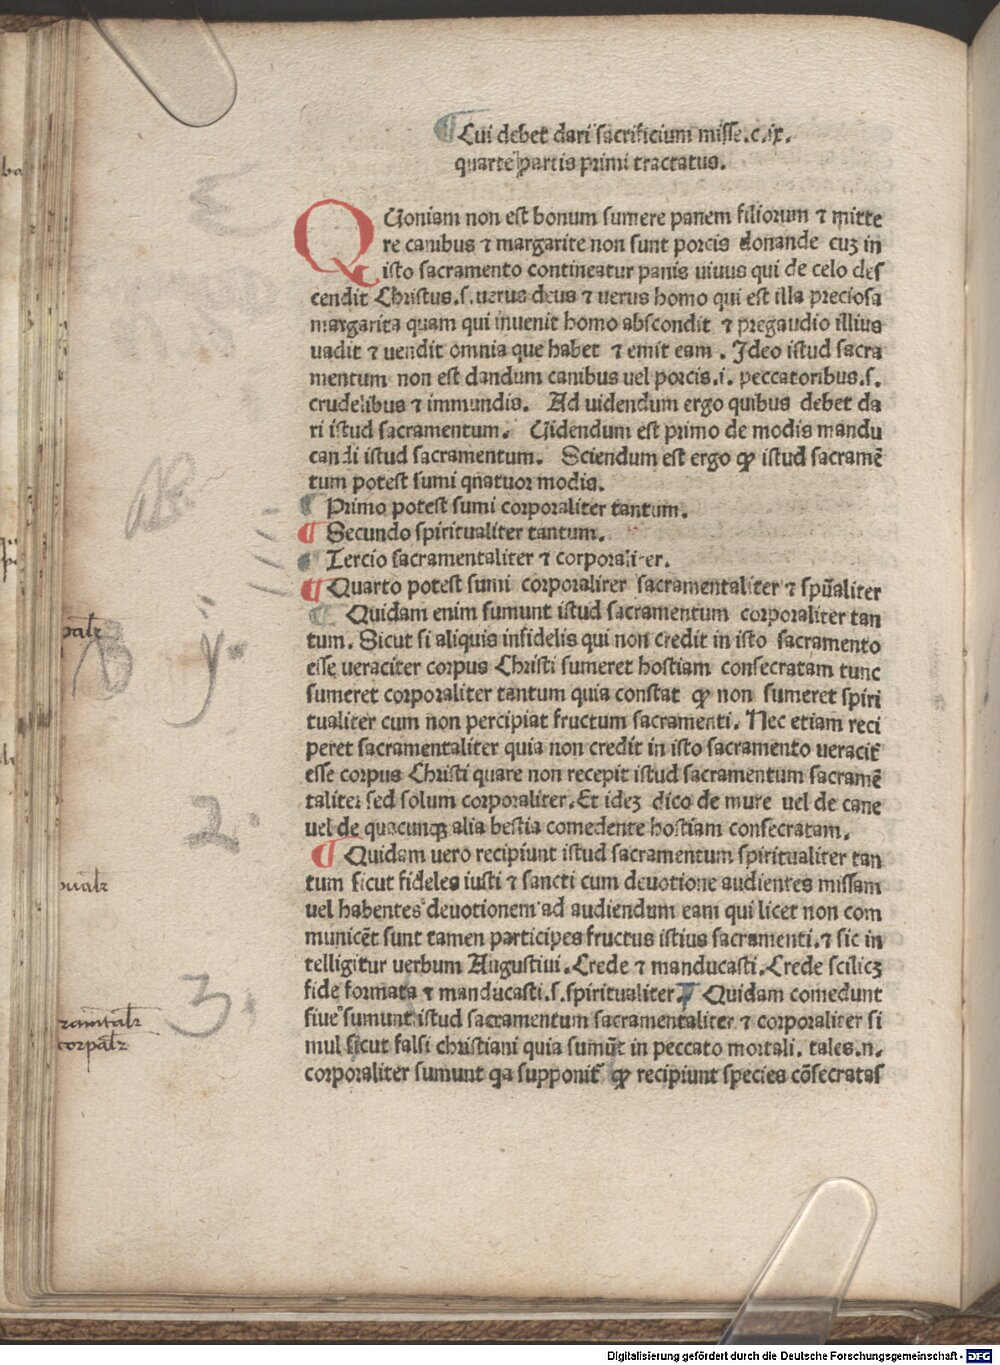 ¶ Cui debet dari sacrificium misse.c.ix.
quarte partis primi tractatus.
QUoniam non est bonum sumere panem filiorum ⁊ mitte
re canibus ⁊ margarite non sunt porcis donande cuꝫ in
isto sacramento contineatur panis uiuus qui de celo des
cendit Christus.s.uerus deus ⁊ uerus homo qui est illa preciosa
margarita quam qui inuenit homo abscondit ⁊ pregaudio illius
uadit ⁊ uendit omnia que habet ⁊ emit eam . Ideo istud sacra
mentum non est dandum canibus uel porcis.i. peccatoribus.s.
crudelibus ⁊ immundis. Ad uidendum ergo quibus debet da
ri istud sacramentum. Uidendum est primo de modis mandu
candi istud sacramentum. Sciendum est ergo ꝙ istud sacramē
tum potest sumi qnatuor modis.
¶ Primo potest sumi corporaliter tantum.
¶ Secundo spiritualiter tantum.
¶ Tercio sacramentaliter ⁊ corporaliter.
¶ Quarto potest sumi corporalirer sacramentaliter ⁊ spūaliter
¶ Quidam enim sumunt istud sacramentum corporaliter tan
tum. Sicut si aliquis infidelis qui non credit in isto sacramento
esse ueraciter corpus Christi sumeret hostiam consecratam tunc
sumeret corporaliter tantum quia constat ꝙ non sumeret spiri
tualiter cum non percipiat fructum sacramenti. Nec etiam reci
peret sacramentaliter quia non credit in isto sacramento ueracit̄
esse corpus Christi quare non recepit istud sacramentum sacramē
taliter sed solum corporaliter.Et ideꝫ dico de mure uel de cane
uel de quacunqꝫ alia bestia comedente hostiam consecratam.
¶ Quidam uero recipiunt istud sacramentum spiritualiter tan
tum sicut fideles iusti ⁊ sancti cum deuotione audientes missam
uel habentes deuotionem ad audiendum eam qui licet non com
municēt sunt tamen participes fructus istius sacramenti.⁊ sic in
telligitur uerbum Augustiui.Crede ⁊ manducasti.Crede scilicꝫ
fide formata ⁊ manducasti.s.spiritualiter.¶ Quidam comedunt
siue sumunt istud sacramentum sacramentaliter ⁊ corporaliter si
mul sicut falsi christiani quia sumūt in peccato mortali. tales.n.
corporaliter sumunt qa supponit̄ ꝙ recipiunt species cōsecratas
2.
3.
Digitalisierung gefördert durch die Deutsche Forschungsgemeinschaft - DFG